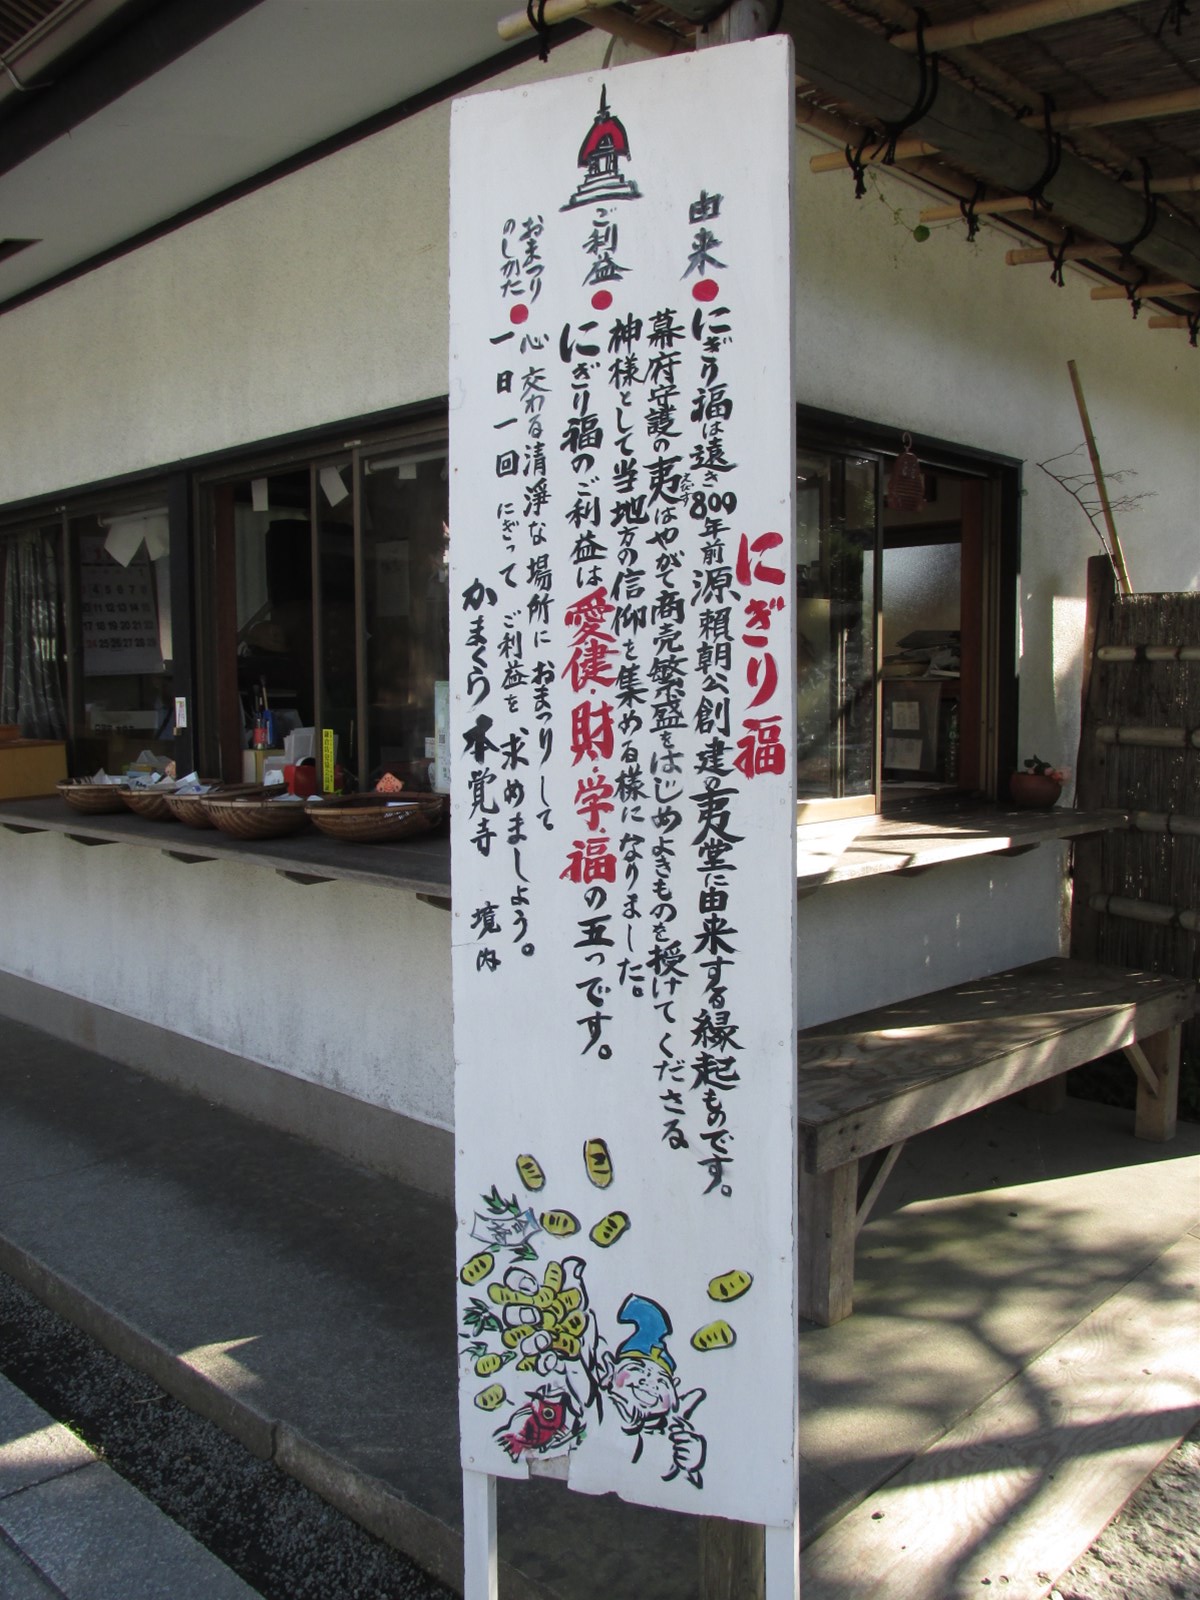 にぎり福
由来
にぎり福は遠き800年前源頼朝公創建の夷堂に由来する縁起ものです。
幕府守護の夷はやがて商売繁盛をはじめよきものを授けてくださる
えびす
神様として当地方の信仰を集める様になりました。
ご利益
にぎり福のご利益は愛・健・財・学・福の五つです。
おまつり
のしかた
心交わる清浄な場所におまつりして
一日一回にぎってご利益を求めましょう。
かまくら本覚寺 境内